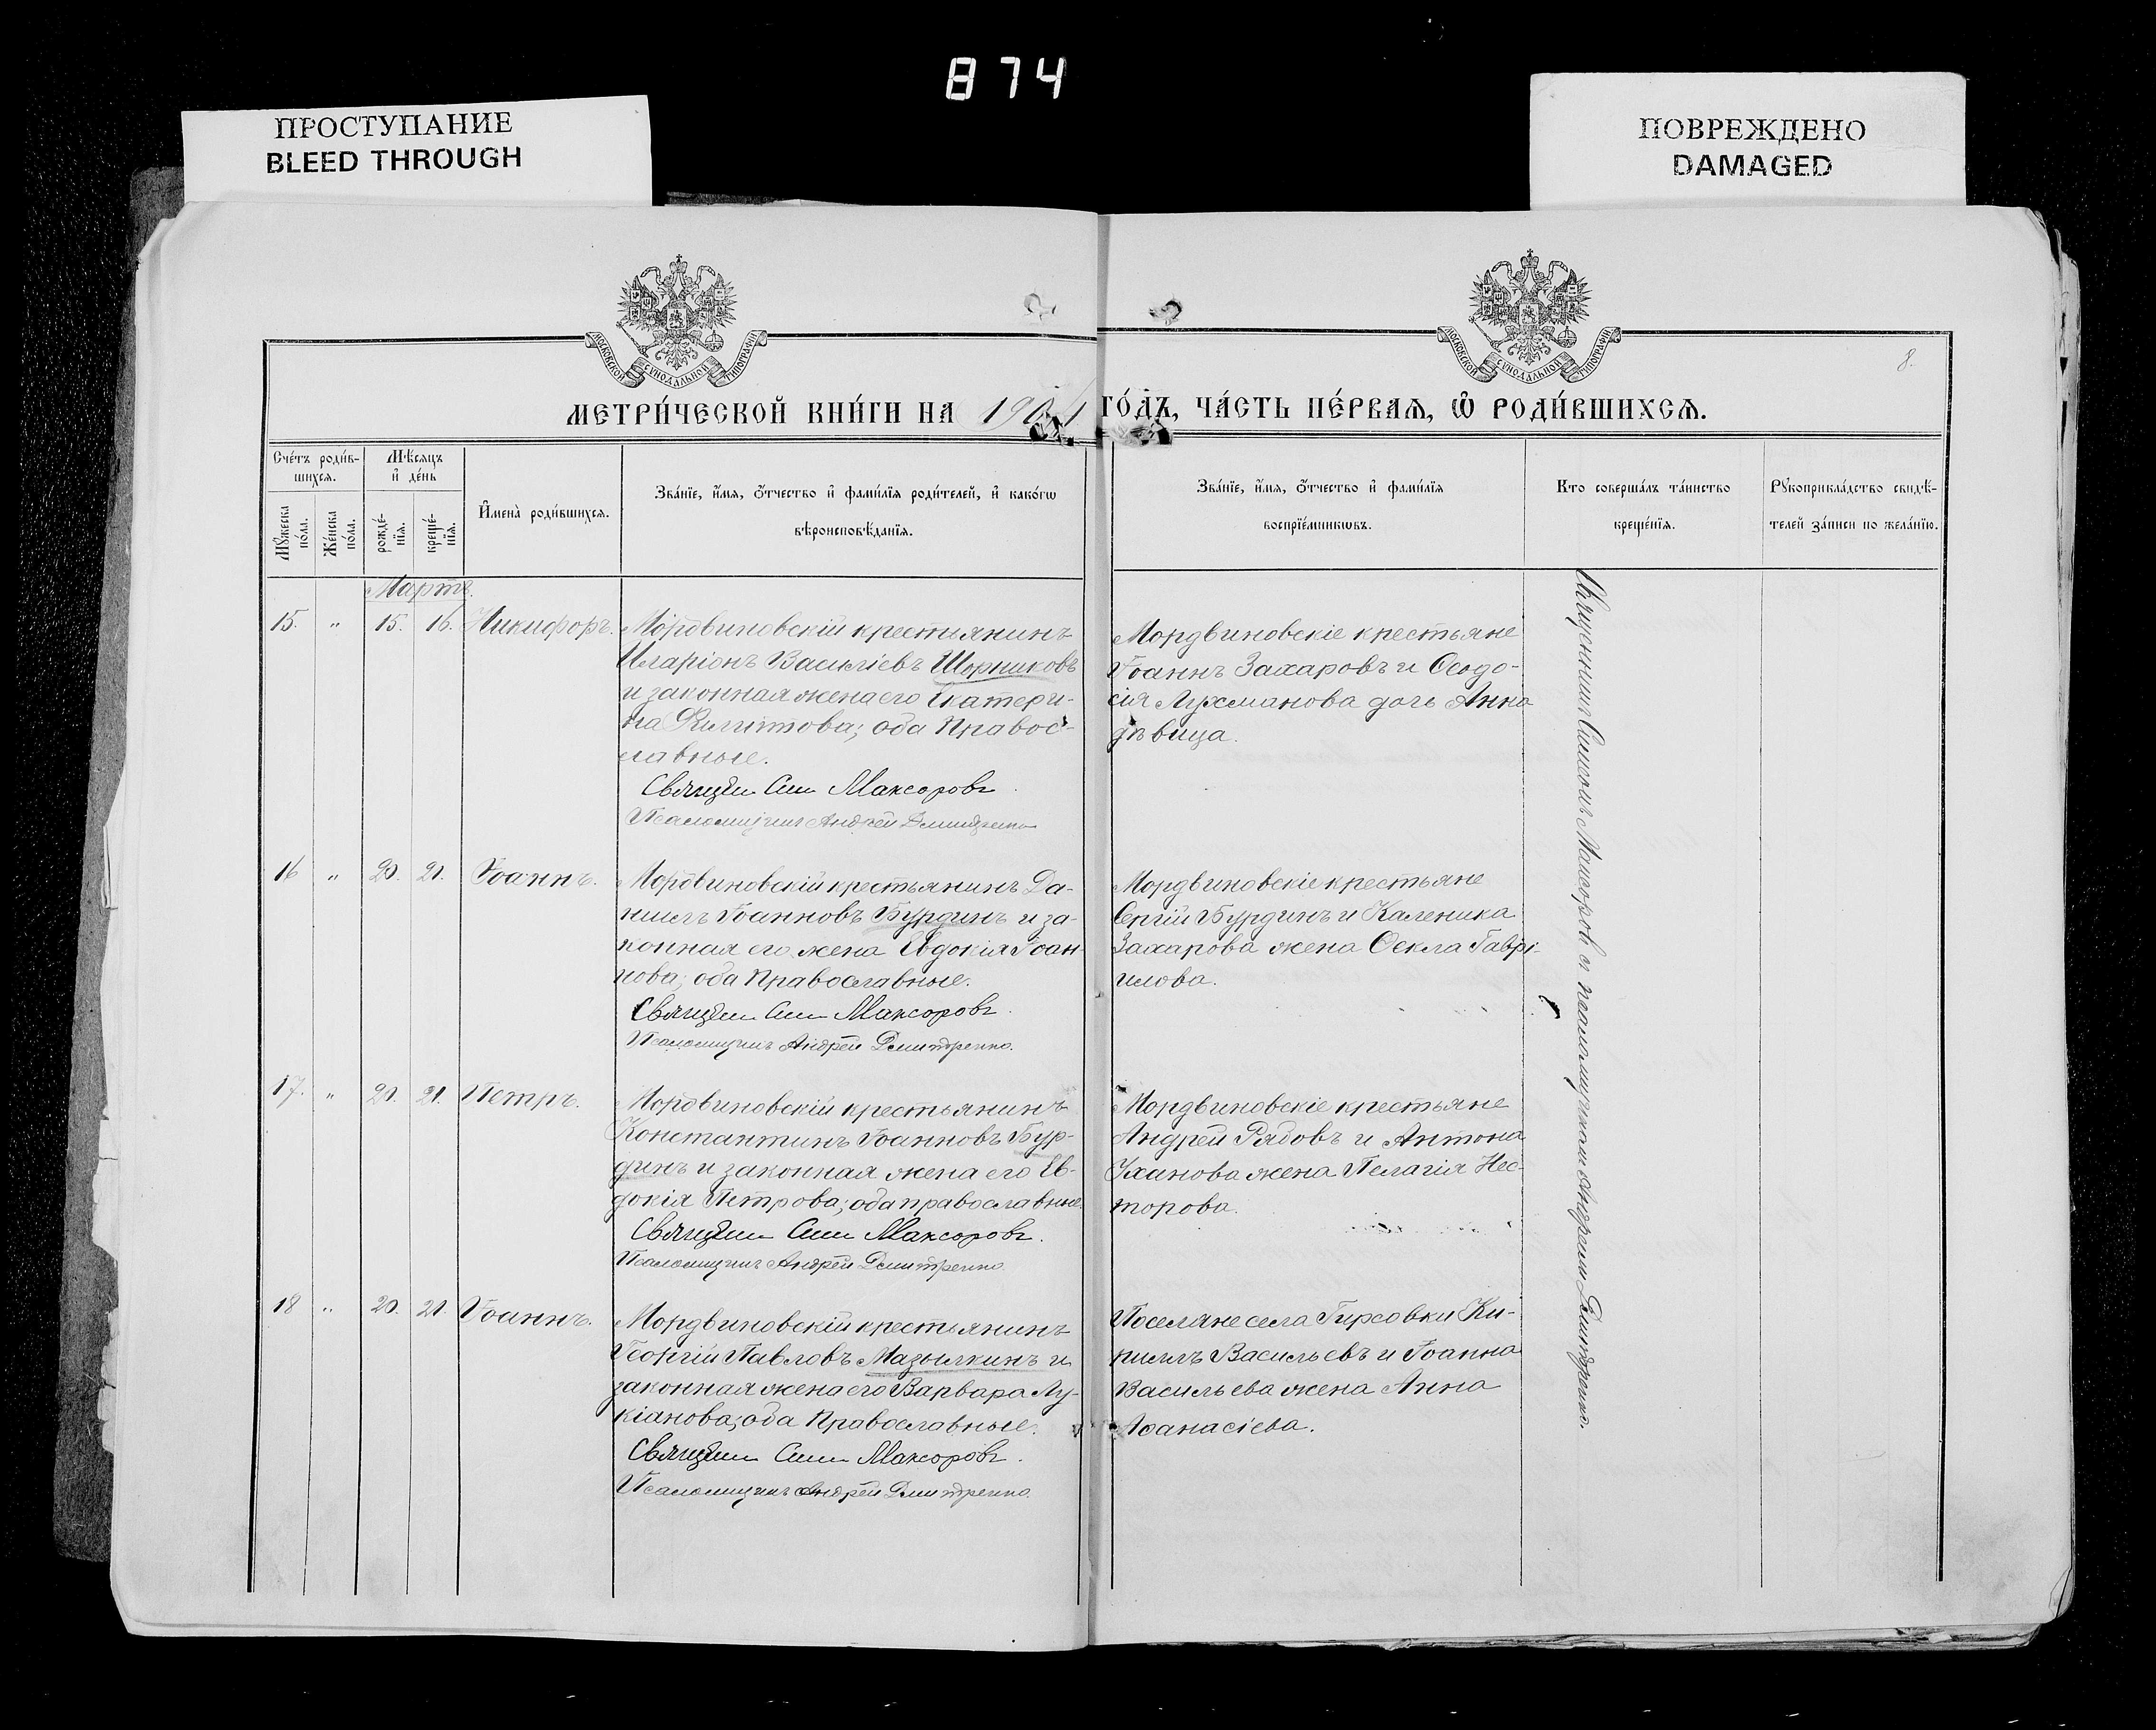 874
ПРОСТУПАНИЕ
BLEED THROUGH
ПОВРЕЖДЕНО
DAMAGED
МОСКОВСКОЙ СУНОДАЛЬНОЙ ТИПОГРАФІИ
МОСКОВСКОЙ СУНОДАЛЬНОЙ ТИПОГРАФІИ
8.
МЕТРИ́ЧЕСКОЙ КНИ́ГИ НА 1901 ГО́ДЪ, ЧА́СТЬ ПЕ́РВАѦ, Ѡ҆ РОДИ́ВШИХСѦ.
Сче́тъ роди́в-
шихсѧ.
Мꙋ́жеска по́ла.
Же́нска по́ла.
Мѣ́сѧцъ
и҆ де́нь
рожде́-нїѧ.
креще́-нїѧ.
И҆мена̀ роди́вшихсѧ.
Зва́нїе, и҆́мѧ, ѻ҆́тчество и҆ фами́лїѧ роди́телей, и҆ како́гѡ
вѣроисповѣ́данїѧ.
Зва́нїе, и҆́мѧ, ѻ҆́тчество и҆ фами́лїѧ
воспрїе́мникѡвъ.
Кто соверша́лъ та́инство
креще́нїѧ.
Рꙋкоприкла́дство свидѣ́-
телей за́писи по жела́нїю.
Мартъ.
15. " 15. 16. Никифоръ.
Мордвиновскій крестьянинъ
Иларіонъ Васильевъ Шорниковъ
и законная жена его Екатери-
на Филиппова; оба Правос-
лавные.
Священ Сим Максоровъ.
Псаломщикъ Андрей Дмитренко
Мордвиновскіе крестьяне
Іоаннъ Захаровъ и Ѳеодо-
сія Лухманова дочь Анна
дѣвица.
16 " 20. 21. Іоаннъ.
Мордвиновскій крестьянинъ Да-
ніилъ Іоанновъ Бурдинъ и за-
конная его жена Евдокія Іоан-
нова; оба Православные.
Священ Сим Максоровъ.
Псаломщикъ Андрей Дмитренко.
Мордвиновскіе крестьяне
Сергій Бурдинъ и Каленика
Захарова жена Ѳекла Гаврі-
илова.
17. " 20. 21. Петръ.
Мордвиновскій крестьянинъ
Константинъ Іоанновъ Бур-
динъ и законная жена его Ев-
докія Петрова; оба православные.
Священ Сим Максоровъ.
Псаломщикъ Андрей Дмитренко
Мордвиновскіе крестьяне
Андрей Рядовъ и Антона
Уханова жена Пелагія Нес-
торова.
18 " 20. 21. Іоаннъ.
Мордвиновскій крестьянинъ
Георгій Павловъ Мазылкинъ и
законная жена его Варвара Лу-
кіанова; оба Православные.
Священ Сим Максоровъ.
Псаломщикъ Андрей Дмитренко.
Поселяне села Гирсовки Ки-
риллъ Васильевъ и Іоанна
Васильева жена Анна
Аѳанасіева.
Священникъ Симеонъ Максоровъ съ псаломщикомъ Андреемъ Дмитренко.